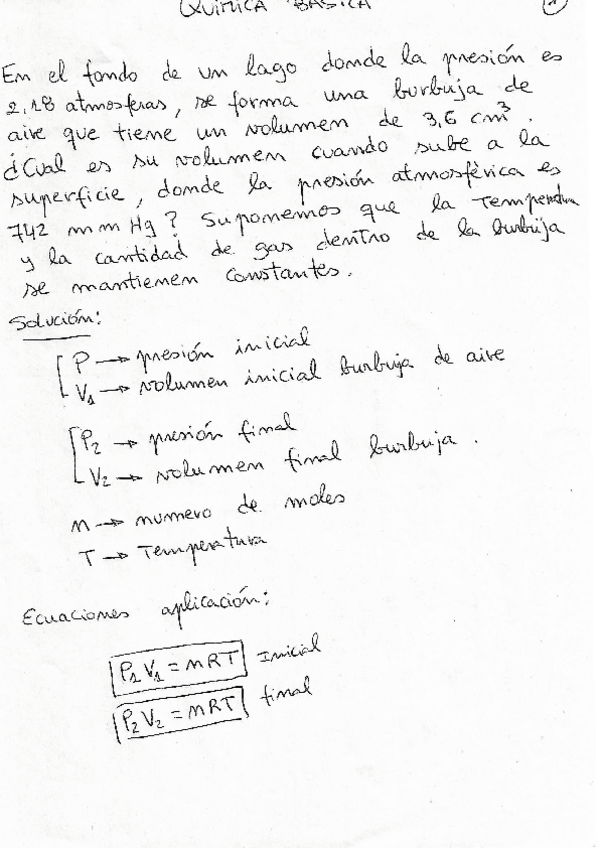 QUIMICA BASICA 1
En el fondo de un lago donde la presión es
2,18 atmosferas, se forma una burbuja de
aire que tiene un volumen de 3,6 cm³.
¿Cual es su volumen cuando sube a la
superficie, donde la presión atmosférica es
742 mm Hg? Suponemos que la Temperatura
y la cantidad de gas dentro de la burbuja
se mantienen constantes.
Solución:
P → presión inicial
V₁ → volumen inicial burbuja de aire
P₂ → presión final
V₂ → volumen final burbuja.
n → numero de moles
T → Temperatura
Ecuaciones aplicación:
P₁V₁ = nRT Inicial
P₂V₂ = nRT final